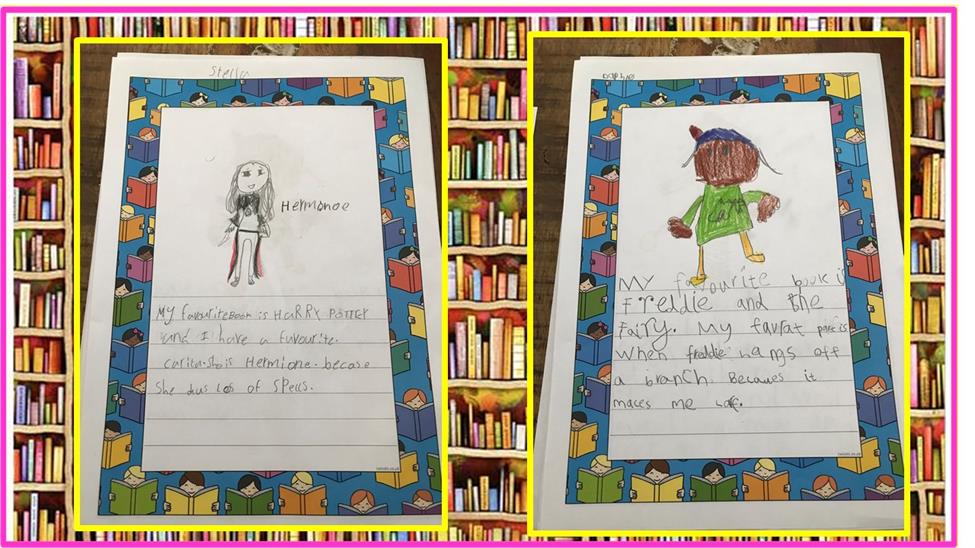 Stella
Hermonoe
MY favouritebook is HARRY POTTER
and I have a favourite.
carita.she is Hermione.becose
She dus los of spells.
twinkl.co.uk
Daphne
MY favourite book is
Freddie and the
Fairy. My favrat parc is
When freddie hangs off
a branch. Becaues it
maces me lafe.